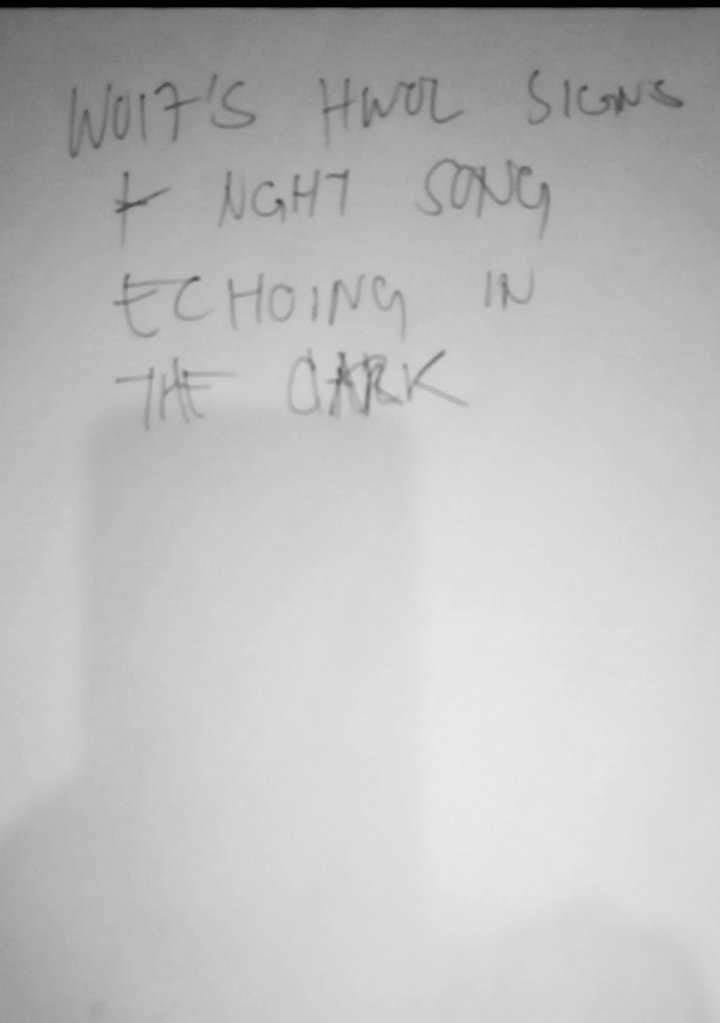 WOlF'S HWOL SIGNS
+ NGHT SONG
ECHOING IN
THE DARK